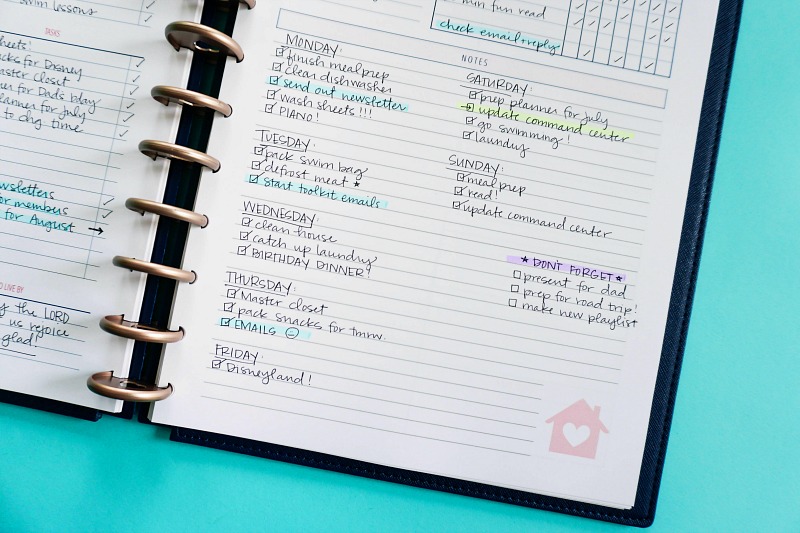 swim lessons
TASKS
sheets!
snacks for Disney
master closet
for Dad's bday
planner for July
to dng time
newsletters
for members
for August →
TO LIVE BY
the LORD
us rejoice
glad!
min fun read
check email+reply
MONDAY:
finish meal prep
clean dishwasher
send out newsletter
wash sheets!!!
PIANO!
TUESDAY:
pack swim bag
defrost meat ★
start toolkit emails
WEDNESDAY:
clean house
catch up laundry
BIRTHDAY DINNER!
THURSDAY:
Master closet
pack snacks for tmrw.
EMAILS
FRIDAY:
Disneyland!
NOTES
SATURDAY:
prep planner for July
update command center
go swimming!
laundry
SUNDAY:
meal prep
read!
update command center
★ DONT FORGET ★
present for dad
prep for road trip!
make new playlist